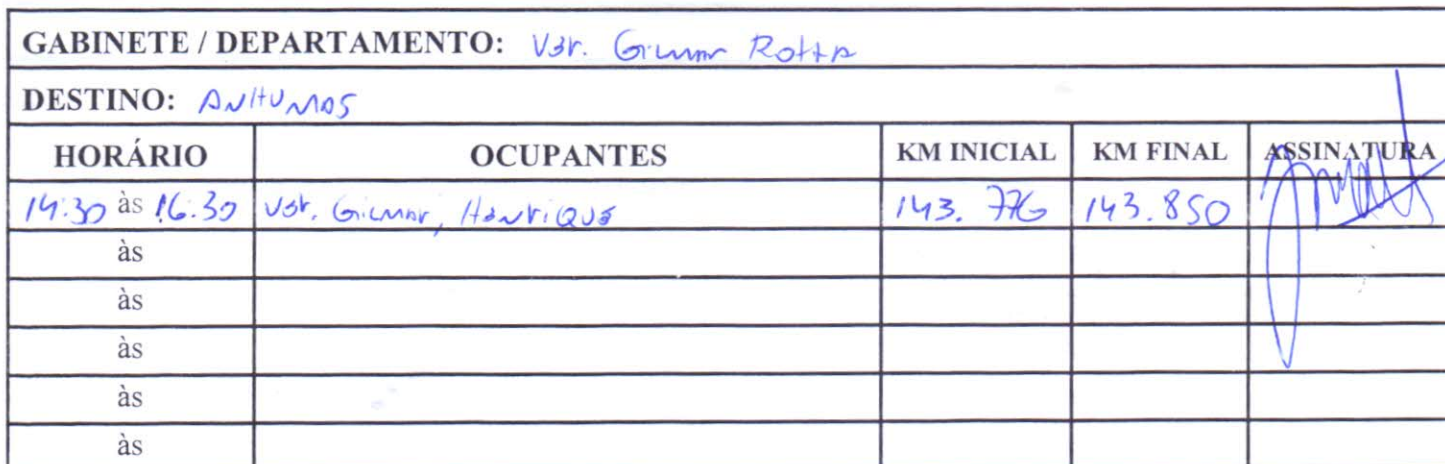 GABINETE / DEPARTAMENTO: Ver. Gilmar Rotta
DESTINO: ANHUMAS
HORÁRIO OCUPANTES KM INICIAL KM FINAL ASSINATURA
14:30 às 16:30 Ver. Gilmar, Henrique 143.776 143.850
às
às
às
às
às